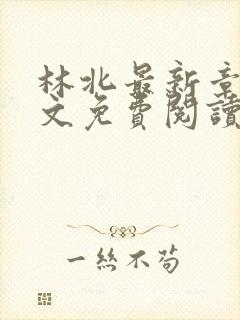 林北最新章
文免費閱讀
一絲不苟